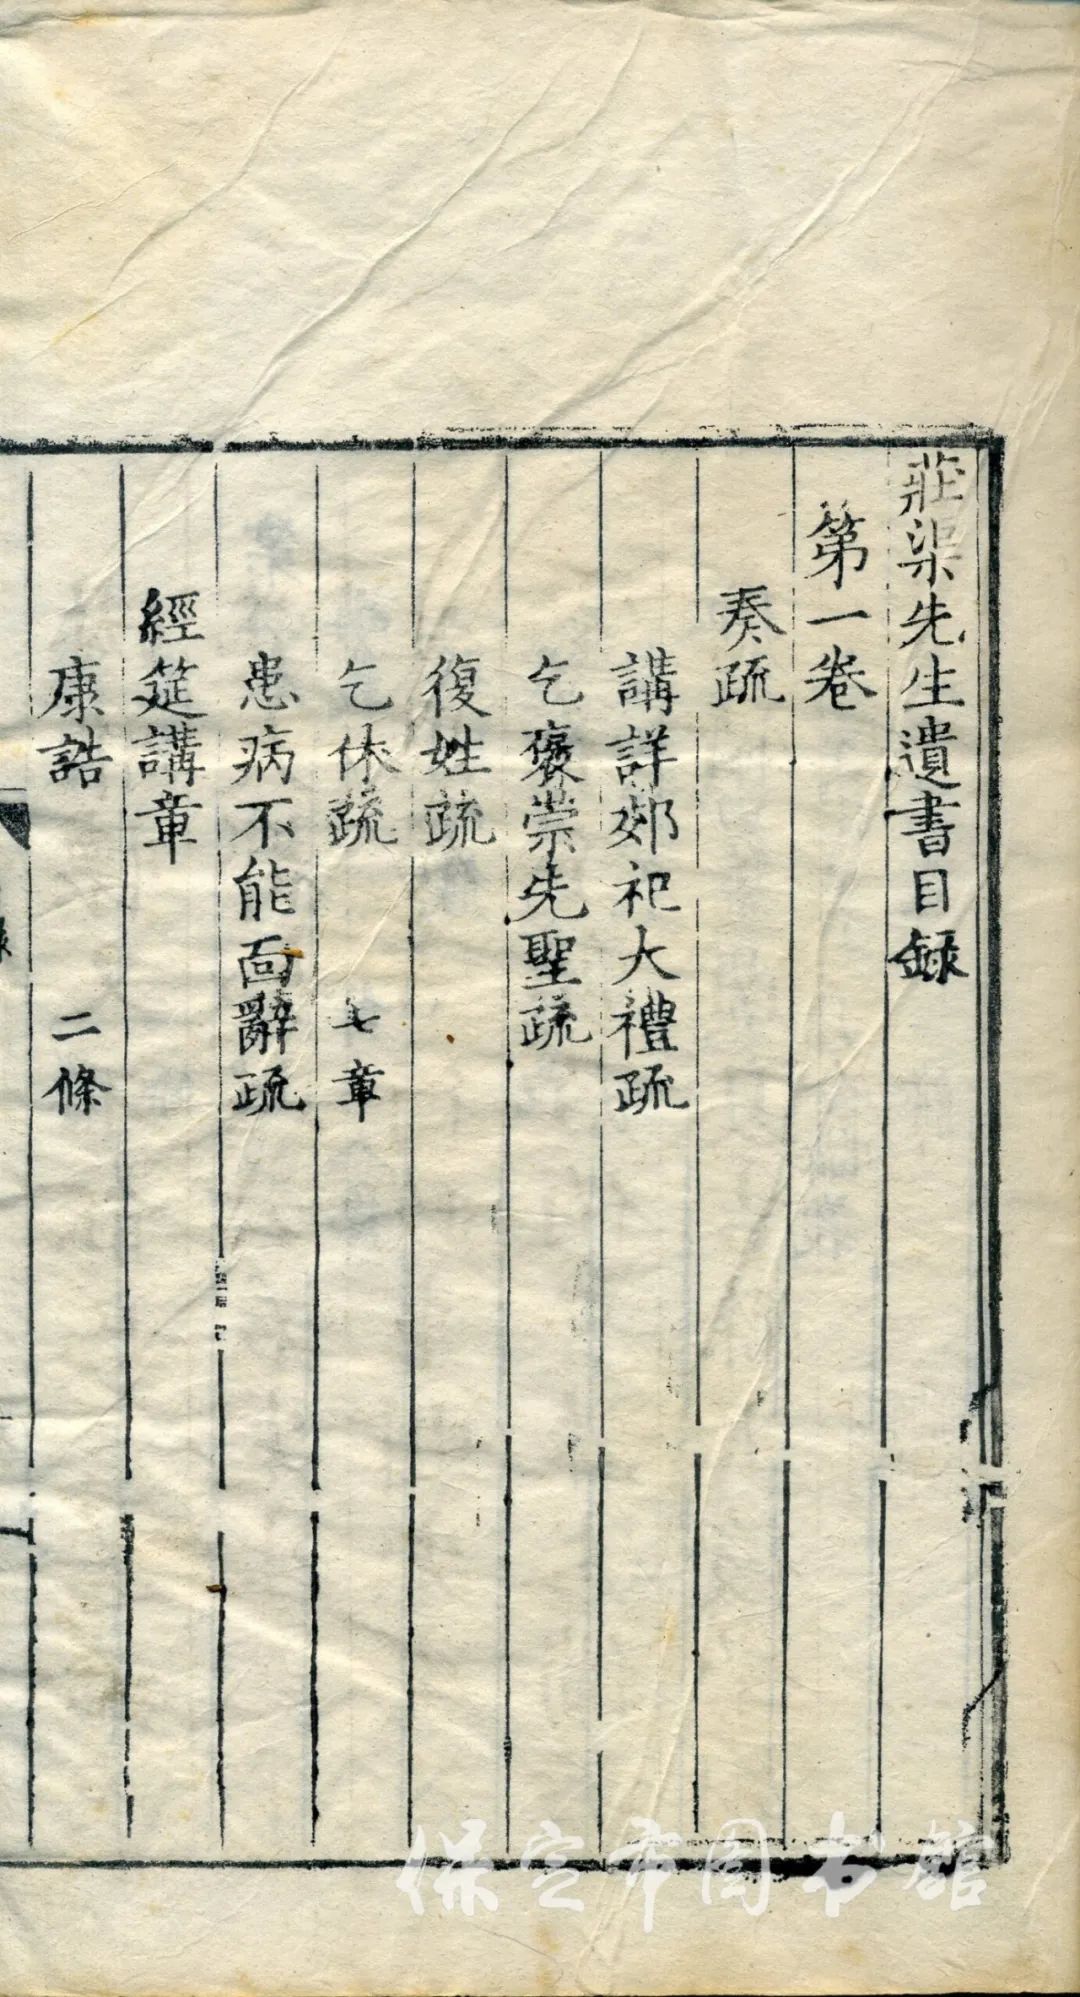 莊渠先生遺書目録
第一卷
奏疏
講詳郊祀大禮疏
乞襃崇先聖疏
復姓疏
乞休疏 七章
患病不能面辭疏
經筵講章
康誥 二條
保定市图书馆